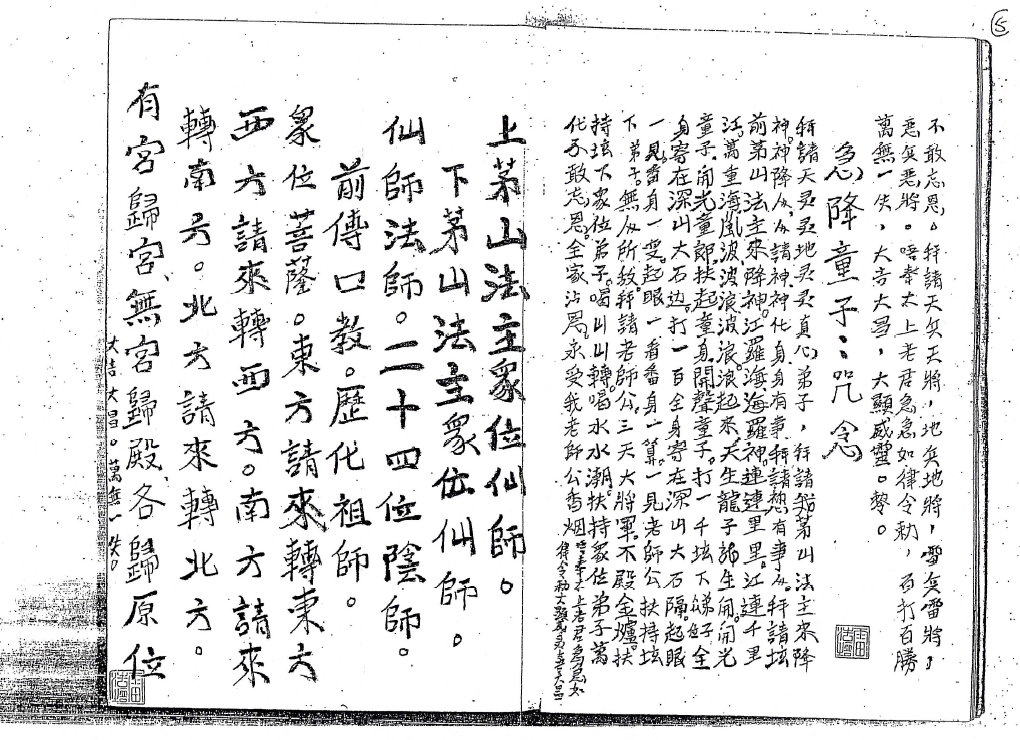 ⑤
不敢忘恩。拜請天兵天將,地兵地將,雷兵雷將,
悪兵悪將。唔奉太上老君急急如律令勅,百打百勝
萬無一失,大吉大昌,大顯威靈。黎。
急降童子:咒念
拜請天灵灵地灵灵真心弟子,拜請我茅山法主來降
神。神降从从請神神化身身有事拜請想有事从。拜請坛
前茅山法主來降神。江羅海海羅神。連連里里。江連千里
江。萬重海風波波浪波浪浪起來。天生龍子 生開。開光
童子。開光童郎。扶起童身開聲童子。打一千坛下 好全
身寄在深山大石边。打一百全身寄在深山大石隔。起眼
一見。番身一变。起眼一看番身一算。一見老師公。扶持坛
下弟子。無从所教拜請老師公。三天大將軍。不殿金爐。扶
持坛下家位弟子。喝山山轉。喝水水潮。扶持家位弟子萬
化不敢忘恩。全家沾恩。永受我老師公香烟 唔奉太上老君急急如
律令勅大顯威灵大吉大昌
上茅山法主衆位仙師。
下茅山法主衆位仙師。
仙師法師。二十四位陰師。
前傳口教。歷化祖師。
衆位菩薩。東方請來轉東方
西方請來轉西方。南方請來
轉南方。北方請來轉北方。
有宮歸宮、無宮歸殿、各歸原位
大吉大昌。萬無一失。